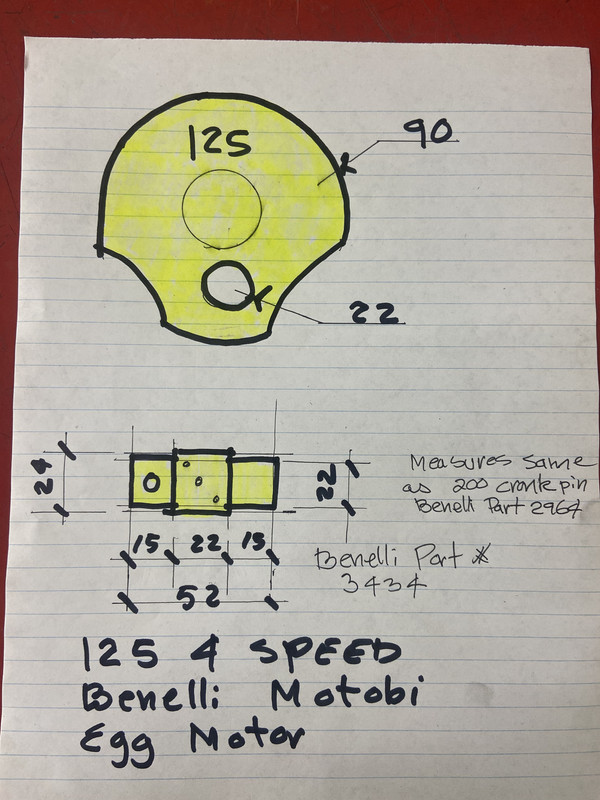 125
90
22
24
22
Measures same
as 200 crankpin
Benelli Part 2964
15 22 15
Benelli Part #
3434
52
125 4 SPEED
Benelli Motobi
Egg Motor